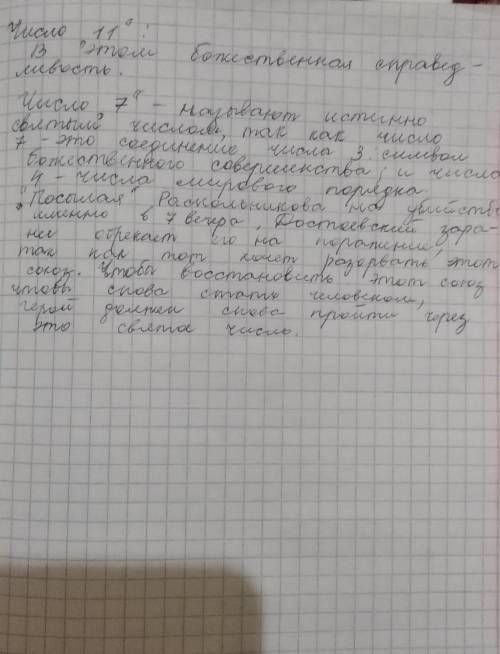 Число 11":
В этом божественная справед-
ливость.
Число 7" - называют истинно
святым числом, так как число
7 - это соединение числа 3 символ
божественного совершенства, и числа
4 - числа мирового порядка.
"Посылая" Раскольникова на убийство
именно в 7 вечера, Достоевский зара-
нее обрекает его на поражение,
так как тот хочет разорвать этот
союз. Чтобы восстановить этот союз
чтобы снова стать человеком,
герой должен снова пройти через
это святое число.